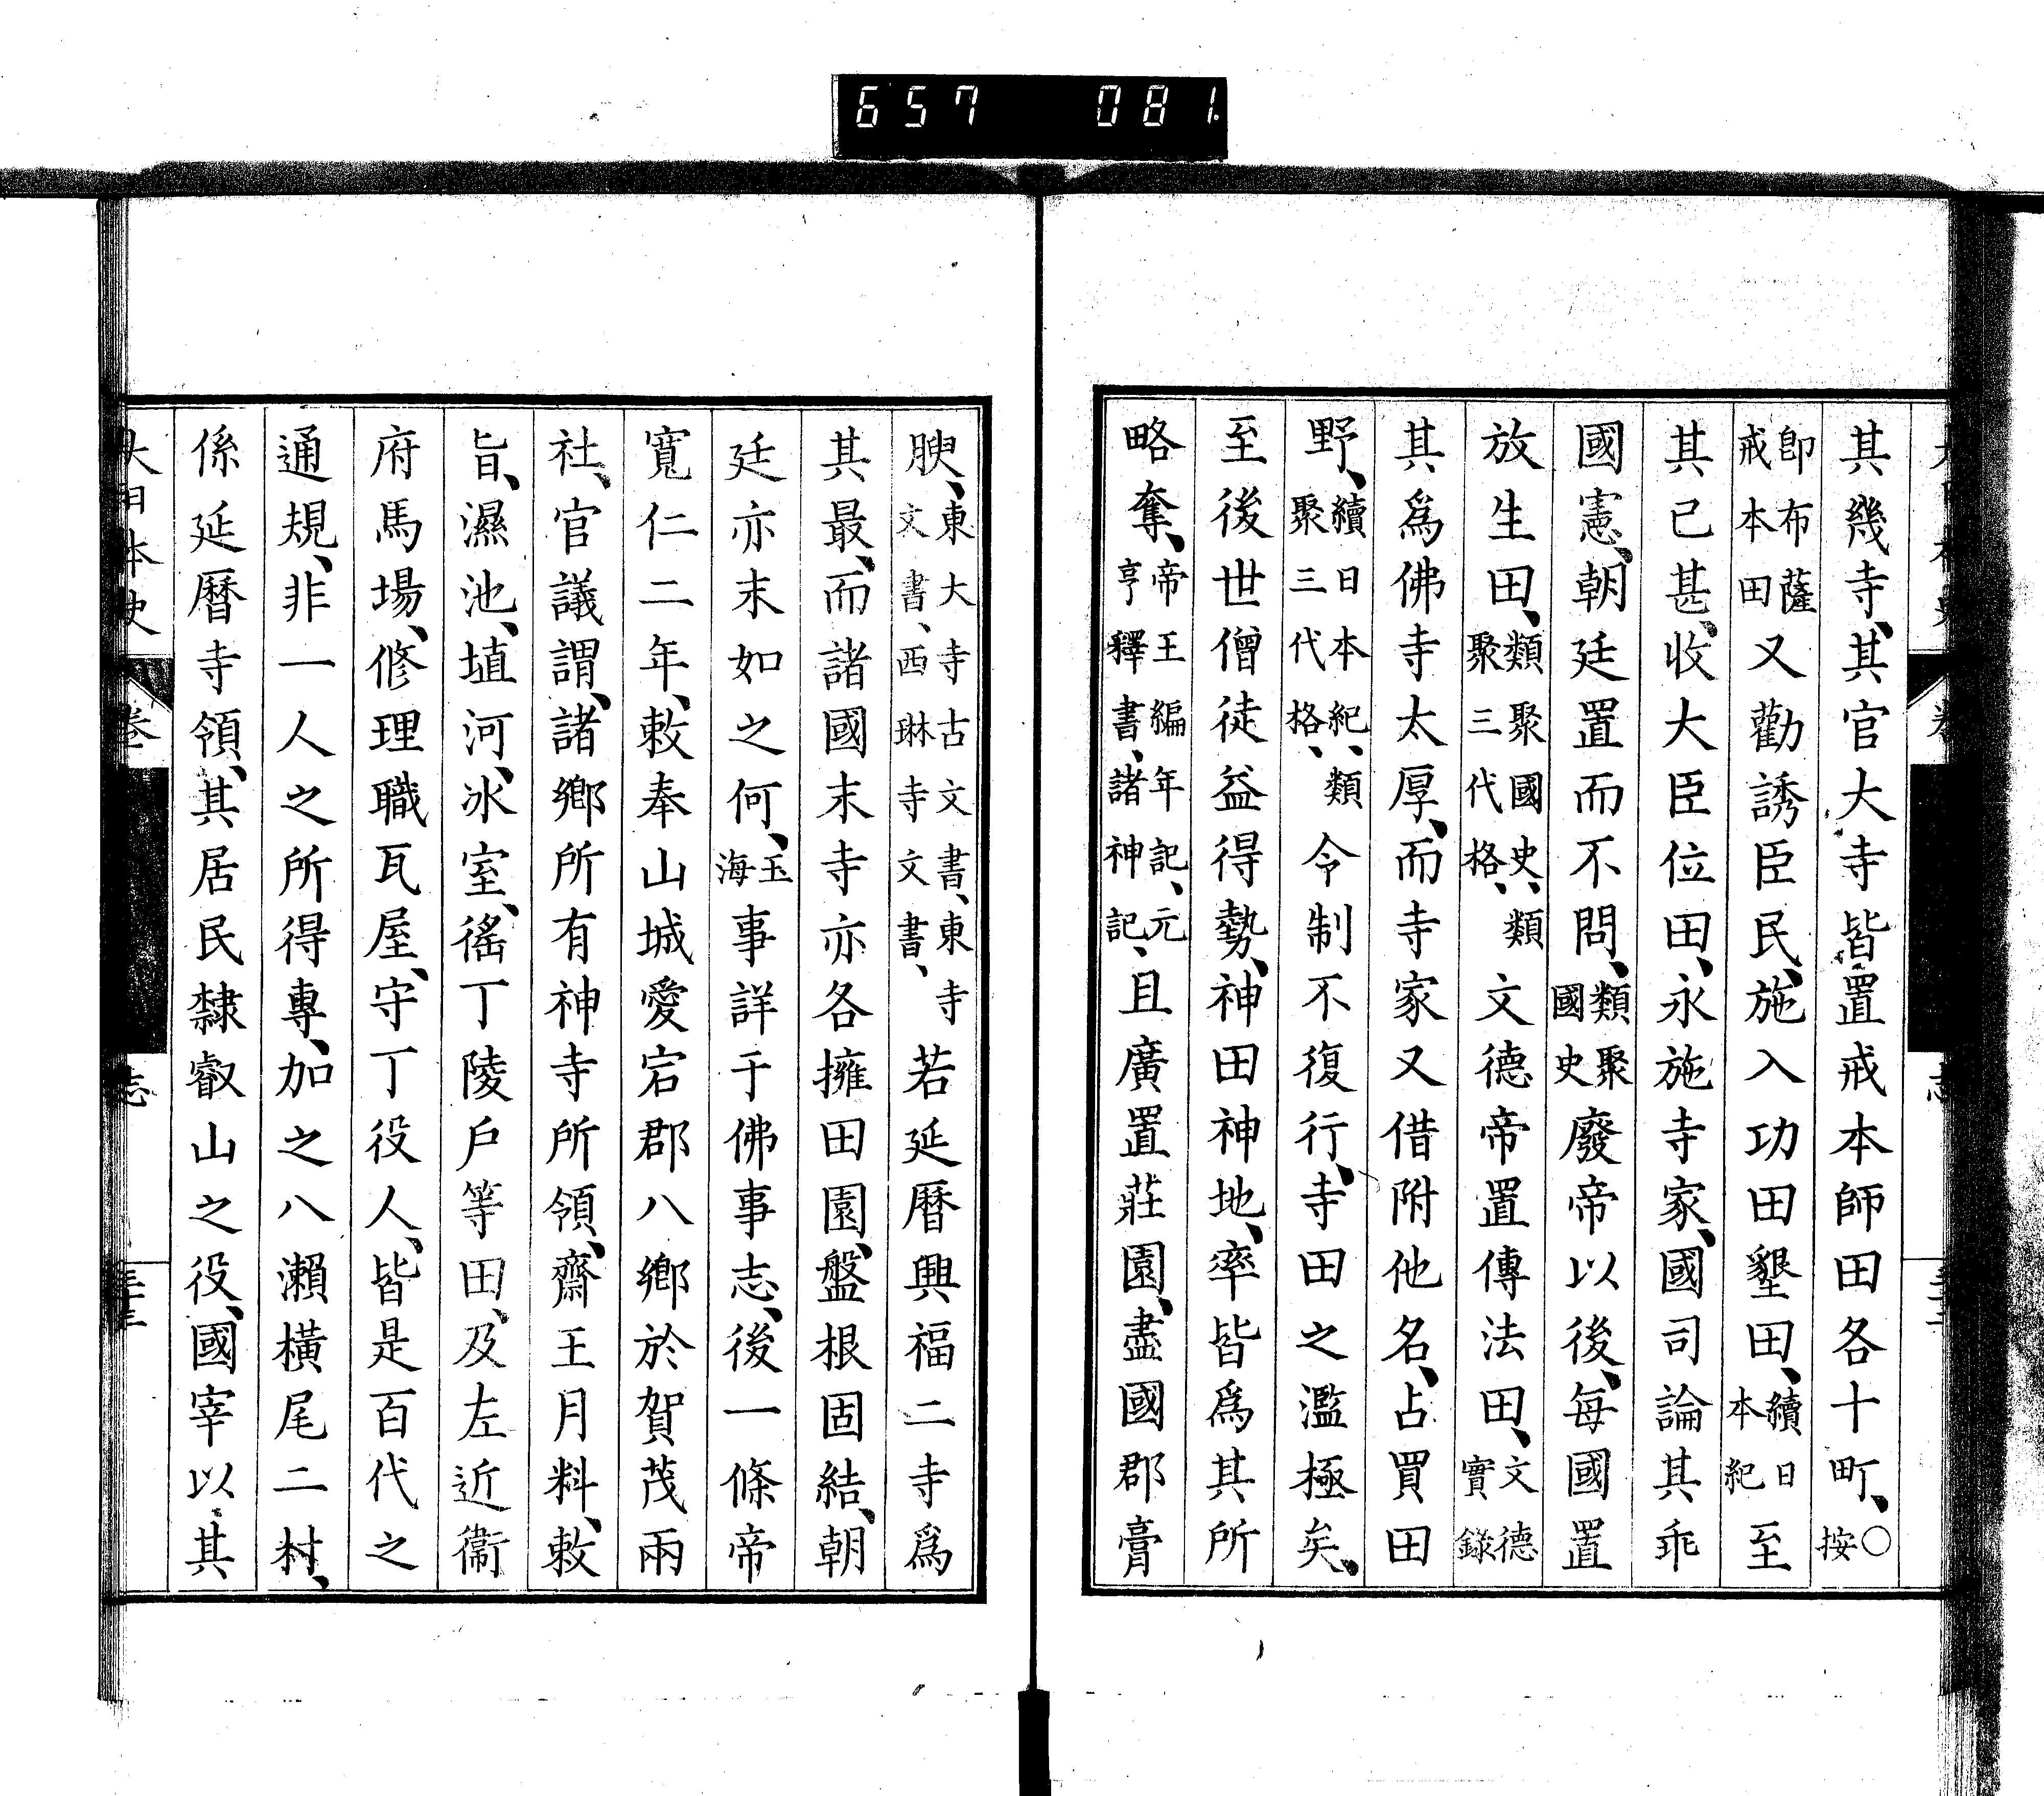 657 081.
其幾寺、其官大寺皆置戒本師田各十町、○按
卽布薩戒本田又勸誘臣民、施入功田墾田、續日本紀至
其已甚、收大臣位田、永施寺家、國司論其乖
國憲、朝廷置而不問、類聚國史廢帝以後、每國置
放生田、類聚國史、類聚三代格、文德帝置傳法田、文德實錄
其爲佛寺太厚、而寺家又借附他名、占買田
野、續日本紀、類聚三代格、令制不復行、寺田之濫極矣、
至後世僧徒益得勢、神田神地、率皆爲其所
略奪、帝王編年記、元亨釋書、諸神記、且廣置莊園、盡國郡膏
腴、東大寺古文書、東寺文書、西琳寺文書、若延曆興福二寺爲
其最、而諸國末寺亦各擁田園、盤根固結、朝
廷亦末如之何、玉海事詳于佛事志、後一條帝
寬仁二年、敕奉山城愛宕郡八鄉於賀茂兩
社、官議謂、諸鄉所有神寺所領、齋王月料、敕
旨、濕池、埴河、氷室、徭丁陵戶等田、及左近衞
府馬場、修理職瓦屋、守丁役人、皆是百代之
通規、非一人之所得專、加之八瀨橫尾二村、
係延曆寺領、其居民隸叡山之役、國宰以其
大日本史
志